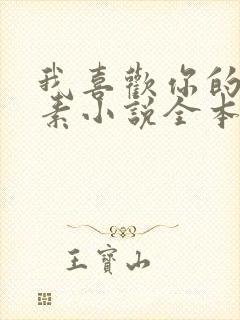 我喜歡你的
素小說全本
王寶山